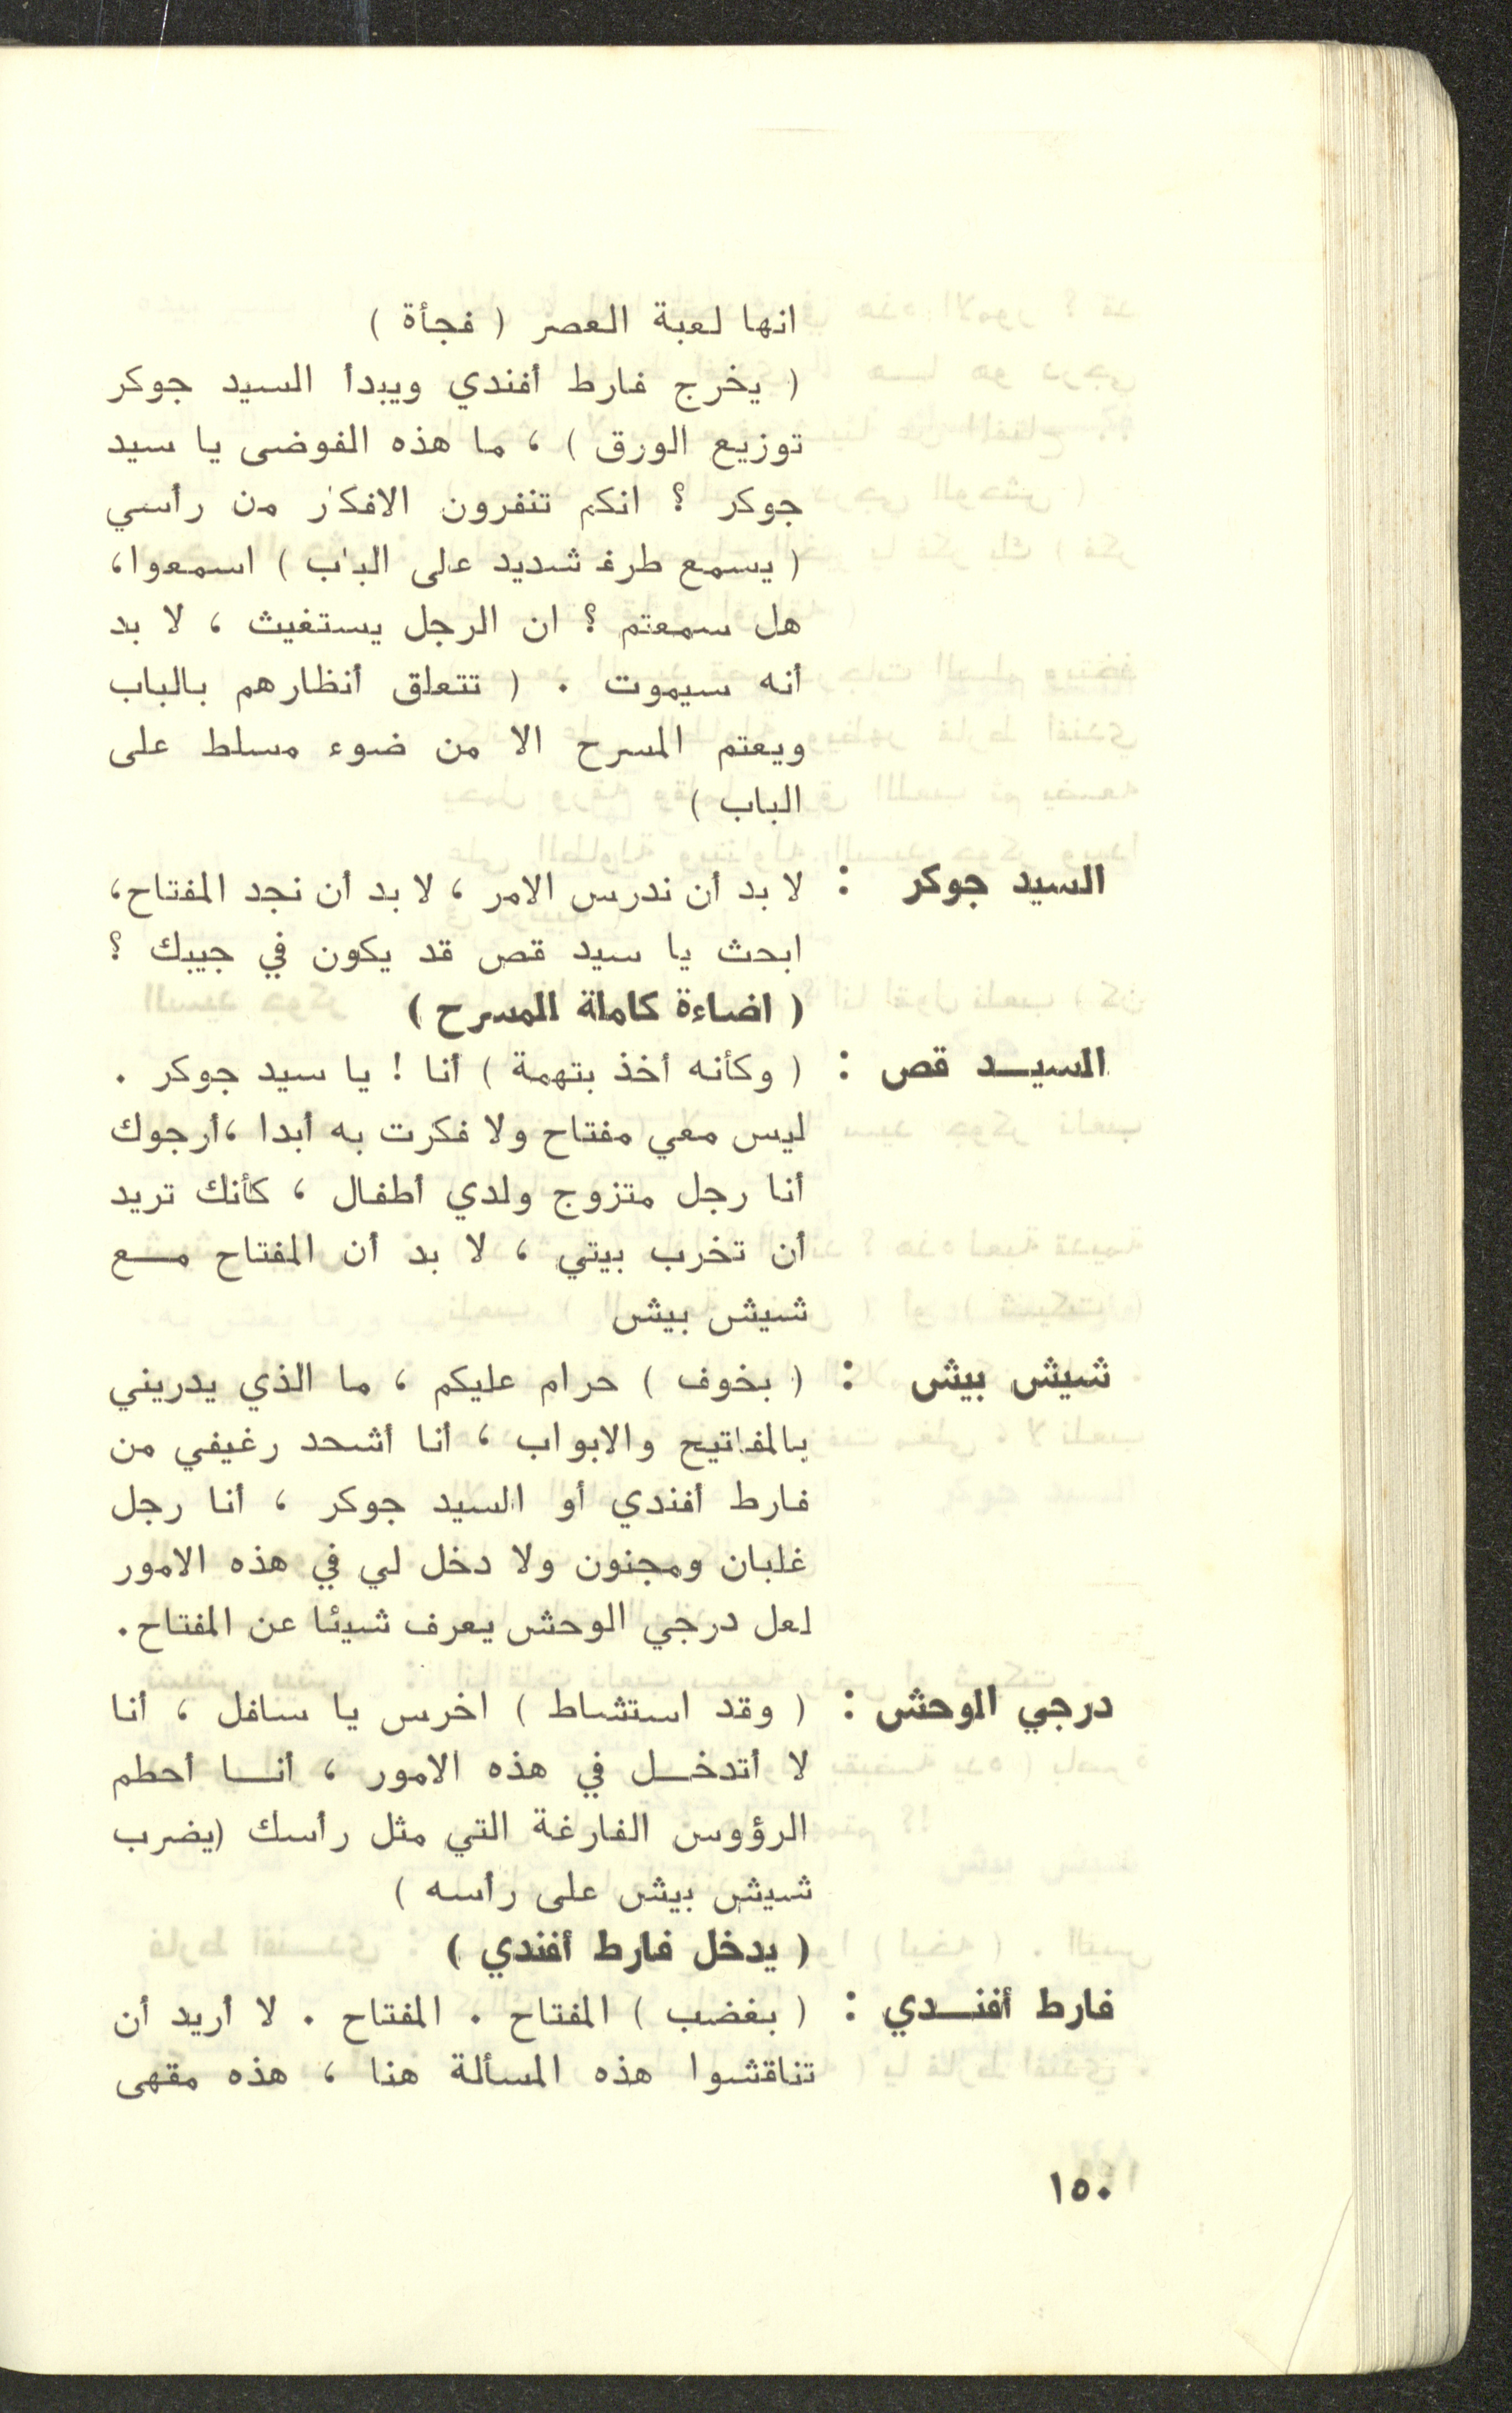 انها لعبة العصر ( فجأة )
( يخرج فارط أفندي ويبدأ السيد جوكر
توزيع الورق ) ، ما هذه الفوضى يا سيد
جوكر ؟ انكم تنفرون الافكار من رأسي
( يسمع طرق شديد على الباب ) اسمعوا،
هل سمعتم ؟ ان الرجل يستغيث ، لا بد
أنه سيموت . ( تتعلق أنظارهم بالباب
ويعتم المسرح الا من ضوء مسلط على
الباب )
السيد جوكر : لا بد أن ندرس الامر ، لا بد أن نجد المفتاح،
ابحث يا سيد قص قد يكون في جيبك ؟
( اضاءة كاملة للمسرح )
السيـــد قص : ( وكأنه أخذ بتهمة ) أنا ! يا سيد جوكر .
ليس معي مفتاح ولا فكرت به أبدا ،أرجوك
أنا رجل متزوج ولدي أطفال ، كأنك تريد
أن تخرب بيتي ، لا بد أن المفتاح مــع
شيش بيش
شيش بيش : ( بخوف ) حرام عليكم ، ما الذي يدريني
بالمفاتيح والابواب ، أنا أشحد رغيفي من
فارط أفندي أو السيد جوكر ، أنا رجل
غلبان ومجنون ولا دخل لي في هذه الامور
لعل درجي الوحش يعرف شيئا عن المفتاح.
درجي الوحش : ( وقد استشاط ) اخرس يا سافل ، أنا
لا أتدخــل في هذه الامور ، أنــا أحطم
الرؤوس الفارغة التي مثل رأسك (يضرب
شيش بيش على رأسه )
( يدخل فارط أفندي )
فارط أفنــدي : ( بغضب ) المفتاح . المفتاح . لا أريد أن
تناقشوا هذه المسألة هنا ، هذه مقهى
١٥٠